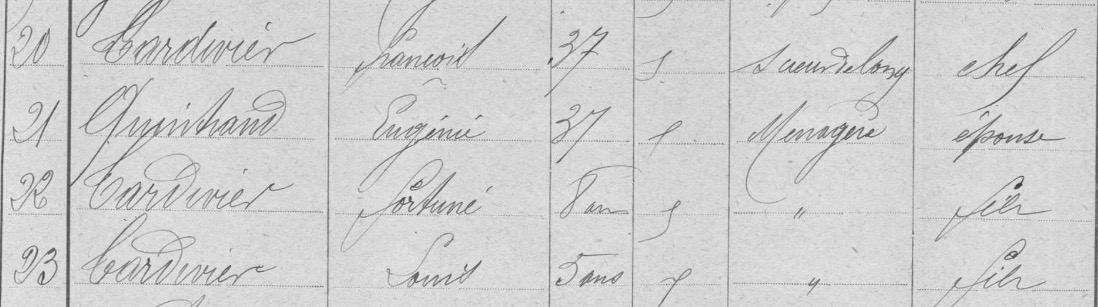 20 Cardivier François 37 f scieur de long chef
21 Quintrand Eugénie 37 f Menagère épouse
22 Cardivier Fortuné 8 an f " fils
23 Cardivier Louis 5 ans f " fils